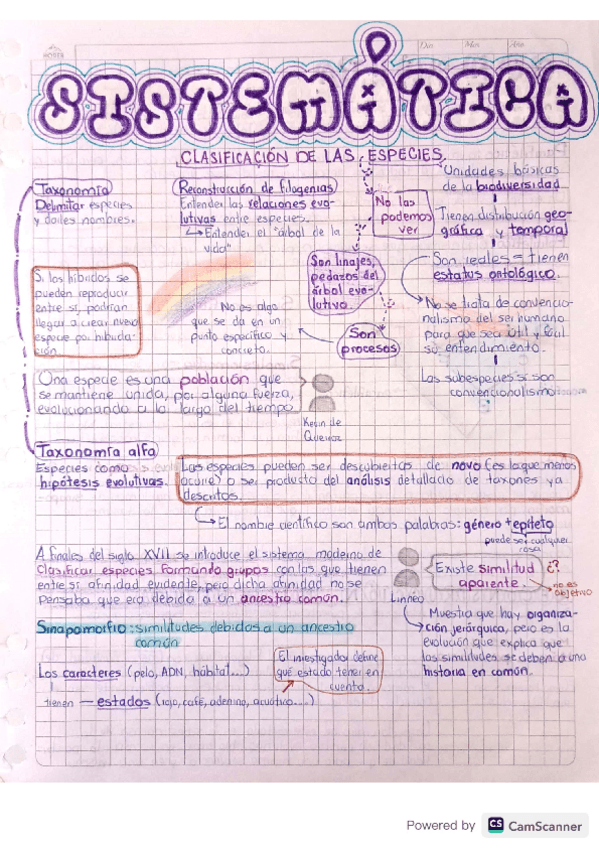 Día Mes Año
SISTEMÁTICA
CLASIFICACIÓN DE LAS ESPECIES
Taxonomía
Delimitar especies
y darles nombres.
Reconstrucción de filogenias
Entender las relaciones evo-
lutivas entre especies.
Entender el "árbol de la
vida"
No las
podemos
ver
Unidades básicas
de la biodiversidad
Tienen distribución geo-
gráfica y temporal
Son reales = tienen
estatus ontológico.
No se trata de convencio-
nalismo del ser humano
para que sea útil y fácil
su entendimiento.
Las subespecies sí son
convencionalismo
Son linajes,
pedazos del
árbol evo-
lutivo
Son
procesos
No es algo
que se da en un
punto específico y
concreto.
Si los híbridos se
pueden reproducir
entre sí, podrían
llegar a crear nueva
especie por hibrida-
ción.
Una especie es una población que
se mantiene unida, por alguna fuerza,
evolucionando a lo largo del tiempo
Kevin de
Queiroz
Taxonomía alfa
Especies como
hipótesis evolutivas.
Las especies pueden ser descubiertas de novo (es la que menos
ocurre) o ser producto del análisis detallado de taxones ya
descritos.
El nombre científico son ambas palabras: género + epíteto
puede ser cualquier
cosa
A finales del siglo XVII se introduce el sistema moderno de
clasificar especies formando grupos con las que tienen
entre sí afinidad evidente, pero dicha afinidad no se
pensaba que era debida a un ancestro común.
Linneo
Existe similitud
aparente.
¿?
no es
objetivo
Muestra que hay organiza-
ción jerárquica, pero es la
evolución que explica que
las similitudes se deben a una
historia en común.
Sinapomorfio: similitudes debidas a un ancestro
común
Los caracteres (pelo, ADN, hábitat...)
tienen — estados (rojo, café, adenina, acuático....)
El investigador define
qué estado tener en
cuenta.
Powered by CS CamScanner